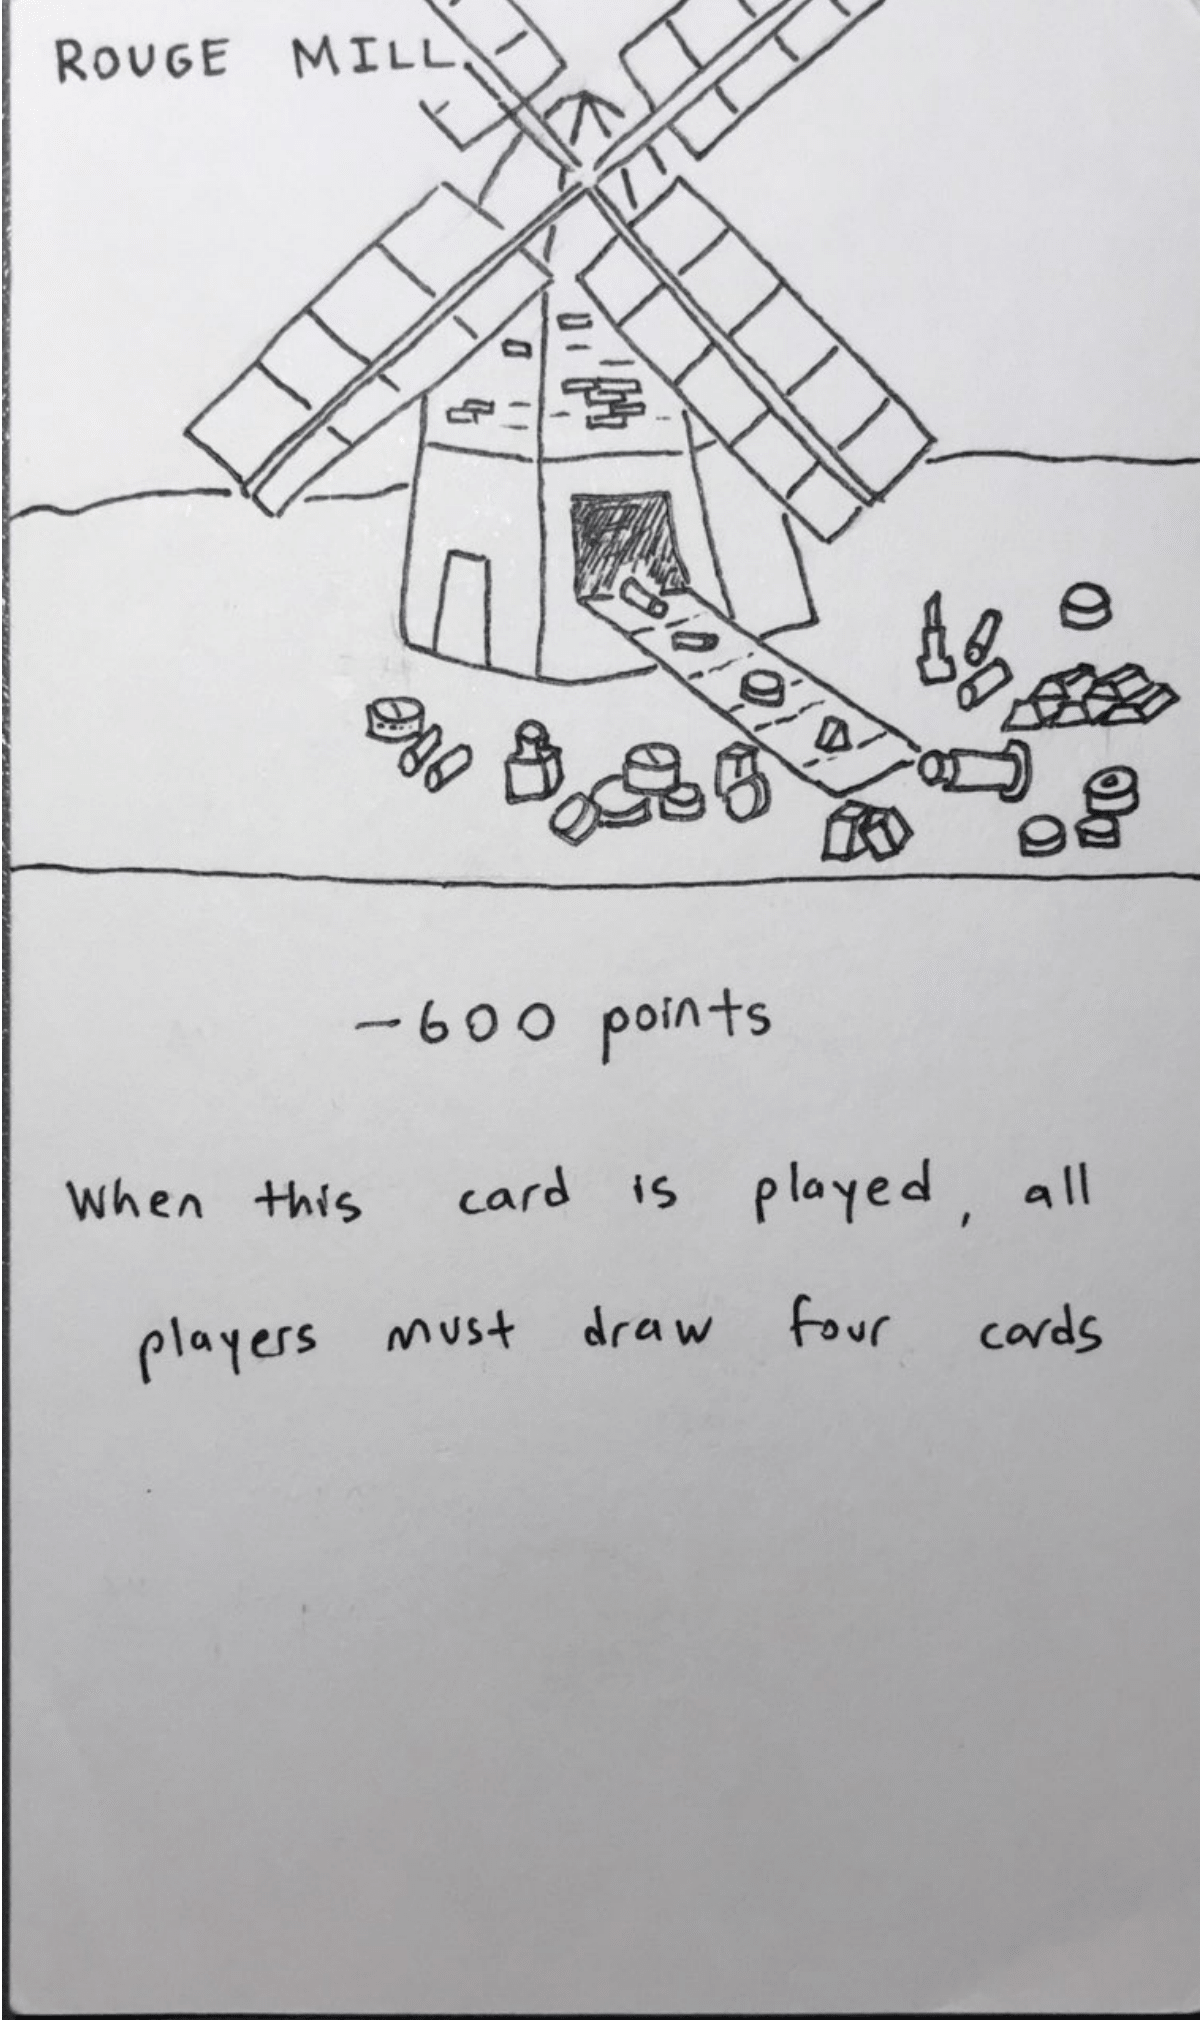 ROUGE MILL
-600 points
When this card is played, all
players must draw four cards